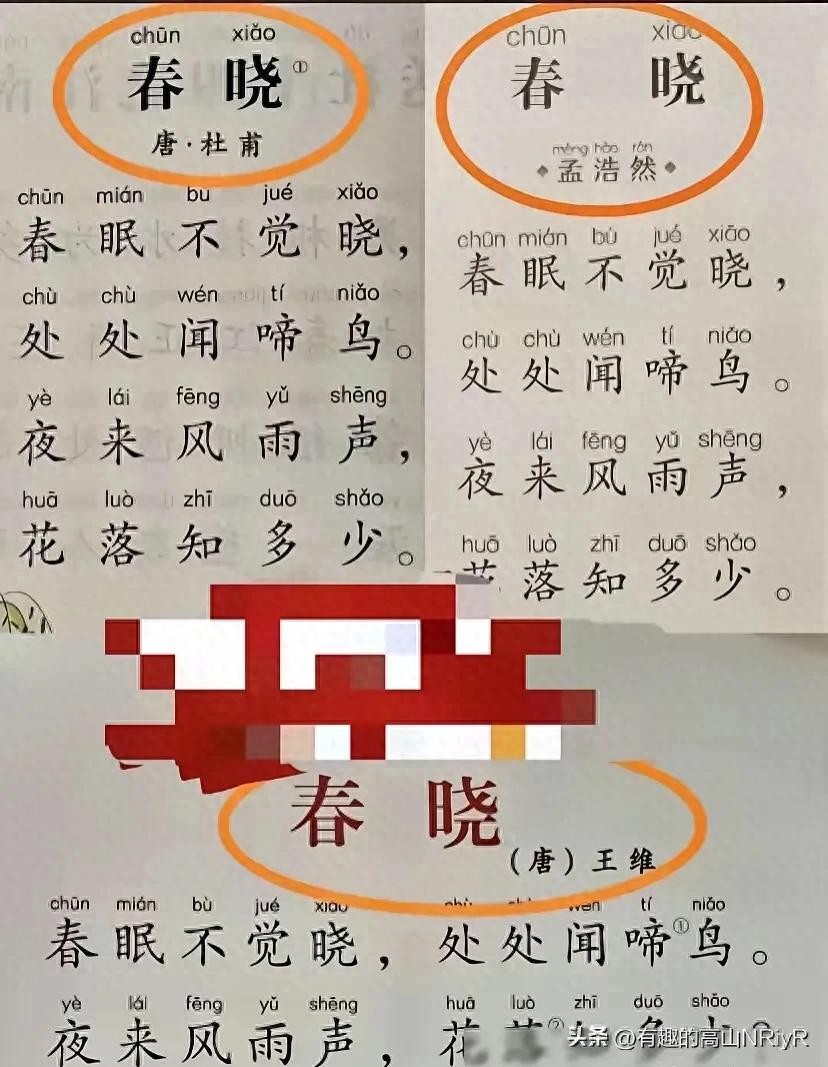 chūn xiǎo
春 晓①
唐·杜甫
chūn mián bu jué xiǎo
春眠不觉晓，
chù chù wén tí niǎo
处处闻啼鸟。
yè lái fēng yǔ shēng
夜来风雨声，
huā luò zhī duō shǎo
花落知多少。
chūn xiǎo
春 晓
mèng hào rán
孟浩然
chūn mián bù jué xiǎo
春眠不觉晓，
chù chù wén tí niǎo
处处闻啼鸟。
yè lái fēng yǔ shēng
夜来风雨声，
huā luò zhī duō shǎo
花落知多少。
春 晓
（唐）王维
chūn mián bù jué xiǎo chù wén tí niǎo
春眠不觉晓，处处闻啼①鸟。
yè lái fēng yǔ shēng huā luò zhī duō shǎo
夜来风雨声，花
头条 @有趣的高山NRiyR